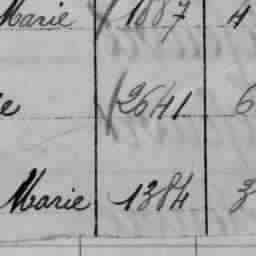 Marie 1887 4
e 2641 6
Marie 1384 3